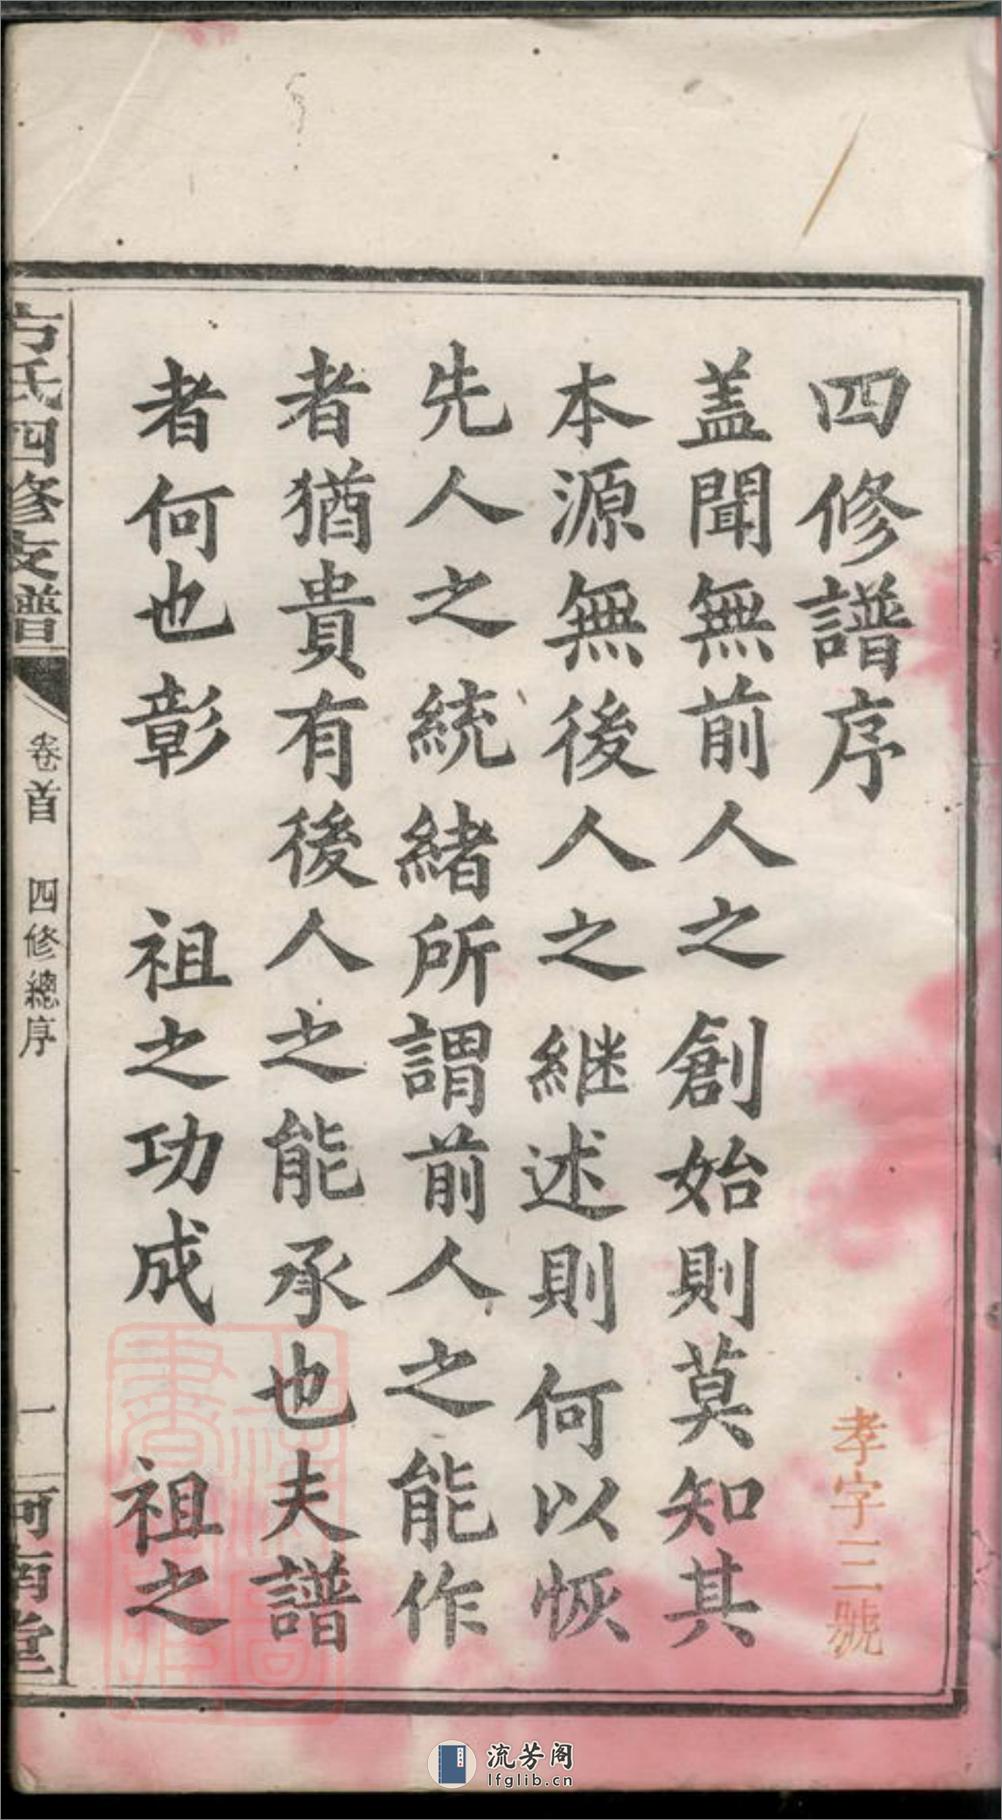 四修譜序
孝字三號
盖聞無前人之創始則莫知其
本源無後人之継述則何以恢
先人之統緒所謂前人之能作
者猶貴有後人之能承也夫譜
者何也彰　祖之功成　祖之
方氏四修支譜
卷首　四修總序
一
河南堂
流芳阁
lfglib.cn